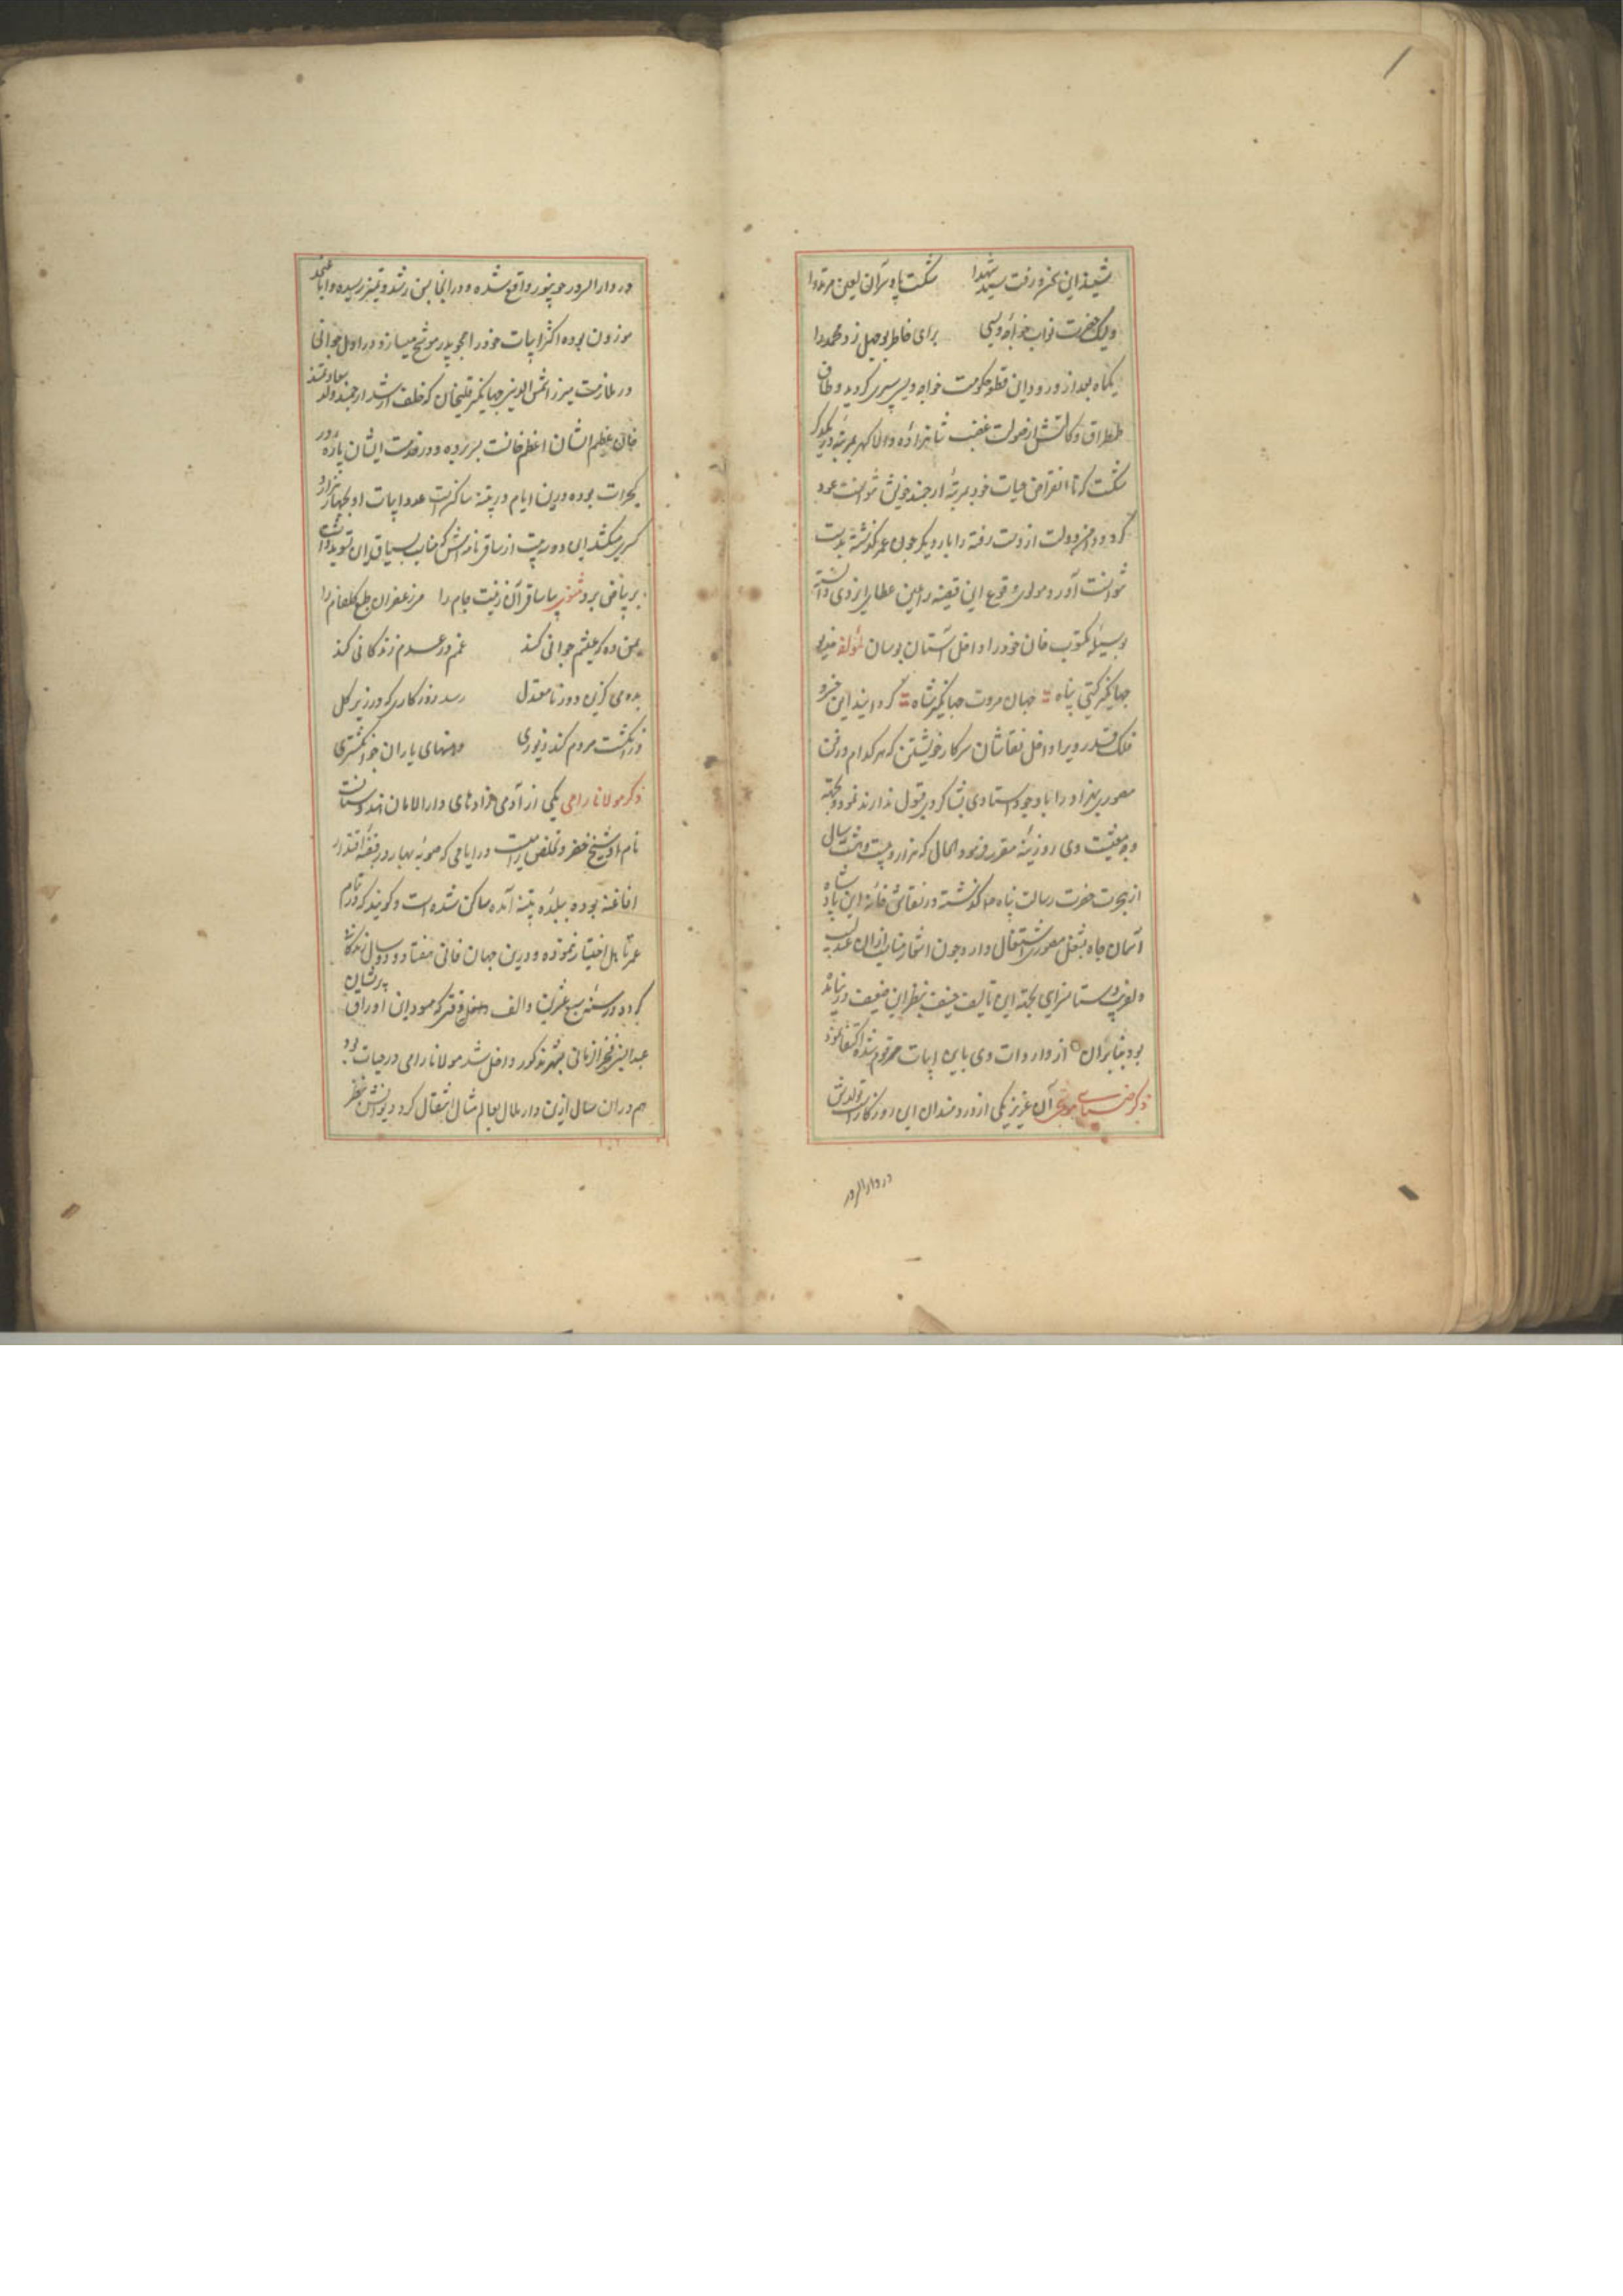 شنید این نمزه رفت سید شهدا شکست پا و سر آن لعین مرتد را
ولیک حضرت نواب خواجه ویسی برای خاطر بوجهل زد محمد را
یکماه بعد از ورود این قطعه حکومت خواجه ویس سپری گردید و طاق
طمطراق وکالتش از صولت غضب شاهزاده والا گهر بمرتبه در یکدگر
شکست که تا انقراض حیات خود بمرتبه ارجمند خویش نتوانست عود
کرد و دامن دولت از دست رفته را بار دیگر چون عمر گذشته بدست
نتوانست آورد مولوی وقوع این قضیه را عین عطای ایزدی دانسته
وسیله مکتوب خان خود را داخل آستان بوسان مؤلفه
جهانگیر گیتی پناه جهان مروت جهانگیر شاه گردانید این خسرو
فلک قدر ویرا داخل نقاشان سرکار خویشتن که هر کدام در فن
مصوری بهزاد را با وجود استادی بشاگردی قبول ندارند نمود و بجهة
وجه معیشت وی روزینه مقرر فرمود الحال که هزار و بیست و هشت سال
از هجرت حضرت رسالت پناه گذشته در نقاشی خانه این پادشاه
آسمان جاه بشغل مصوری اشتغال دارد چون اشعار مناسب از ان عندلیب
داستانسرای بجهة این تالیف بنظر این ضعیف در نیامده
بود بنابران از واردات وی باین ابیات مرقوم شده اکتفا نمود
ذکر آن عزیز یکی از دردمندان این روزگار است تولدش
در دار السرور
در دار السرور جونپور واقع شده و در انجا بسن رشد و تمیز رسیده و
موزون بوده اکثر ابیات خود را بهجو پدر موشح میسازد در اول جوانی
در ملازمت میرزا شمس الدین جهانگیر قلیخان که خلف ارشد ارجمند سعادتمند
خان عظیم الشان اعظم خانست بسر برده و در خدمت ایشان پاره در
گجرات بوده درین ایام در پتنه ساکن است عدد ابیات او بچهار هزار
کسری میکشد این دو سه بیت از ساقی نامه اش که مناسب بسیاق این
بر بیاض برد مثنوی بیا ساقی آن زینت جام را مزعفران طبع گلفام را
بمن ده که عیشم جوانی کند غمم در عدم زندگانی کند
بده می کزین دور نا معتدل رسد روزگاری که در زیر گل
ز انگشت مردم کند دهنهای یاران خود انگشتری
ذکر مولانا رامی یکی از آدمی زادهای دار الامان هندوستانست
نام او شیخ خضر و تخلص رامیست در ایامی که صوبه بهار در قبضه اقتدار
افاغنه بوده ببلده پتنه آمده ساکن شده است و گویند که در تمام
عمر تاهل اختیار ننموده و درین جهان فانی هفتاد و دو سال زندگانی
کرد و در سنه سبع عشرین و الف که مسود این اوراق پریشان
عبد النبی فخر الزمانی بشهر مذکور داخل شد مولانا رامی در حیات بود
هم در ان سال ازین دار ملال بعالم مثال انتقال کرد دیوانش بنظر